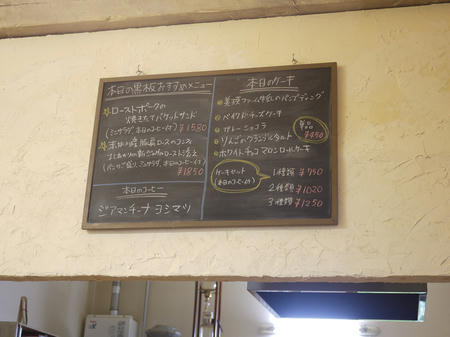 本日の黒板おすすめメニュー
☆ローストポークの
焼きたてバケットサンド
(ミニサラダ、本日のコーヒー付) ¥1580
(パン、ミニサラダ、本日のコーヒー付)
¥1850
本日のコーヒー
ジアマンチーナ ヨシマツ
本日のケーキ
美瑛ファーム牛乳のパンプディング
ベイクドチーズケーキ
ガトーショコラ
りんごのクランブルタルト
ホワイトチョコマロンロールケーキ
単品
¥450
ケーキセット
(本日のコーヒー付)
1種類 ¥750
2種類 ¥1020
3種類 ¥1250